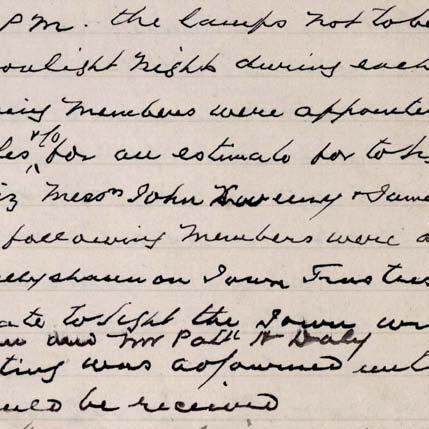 PM. the lamps not to be
oonlight night during each
ing members were appointe
les & to for an estimate for to lig
iz Messrs John Sweeny & Jame
following members were a
llyshannon Town Trustees
ate to light the Town
and Mr Patk A Daly
ting was adjourned unt
ould be received